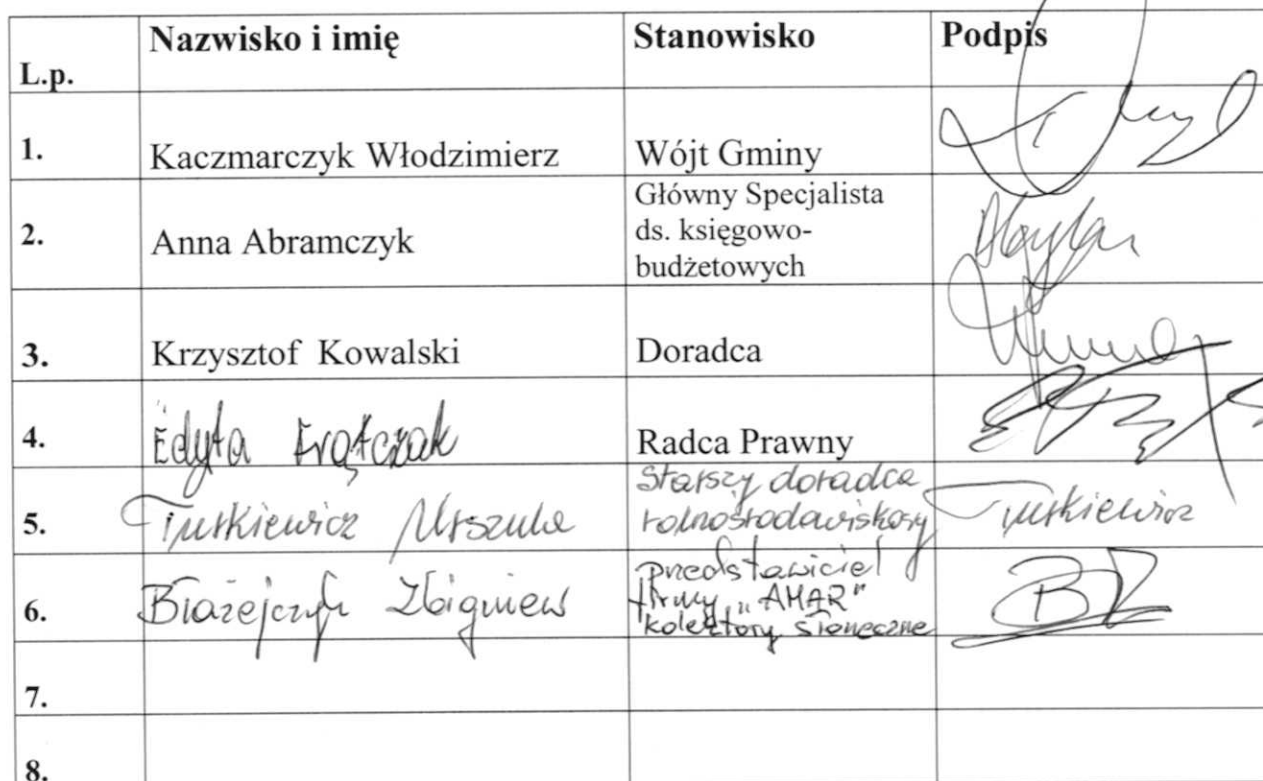 L.p. Nazwisko i imię Stanowisko Podpis
1. Kaczmarczyk Włodzimierz Wójt Gminy
2. Anna Abramczyk Główny Specjalista
ds. księgowo-
budżetowych
3. Krzysztof Kowalski Doradca
4. Edyta Frątczak Radca Prawny
5. Turkiewicz Urszula Starszy doradca
rolnośrodowiskowy Turkiewicz
6. Błażejczyk Zbigniew przedstawiciel
firmy „AMAR"
kolektory słoneczne BZ
7.
8.